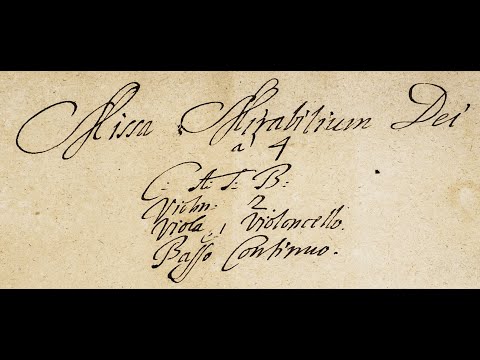 Missa Mirabilium Dei
a 4
C: A: T: B:
Violin: 2
Viola, e Violoncello.
Basso Continuo.